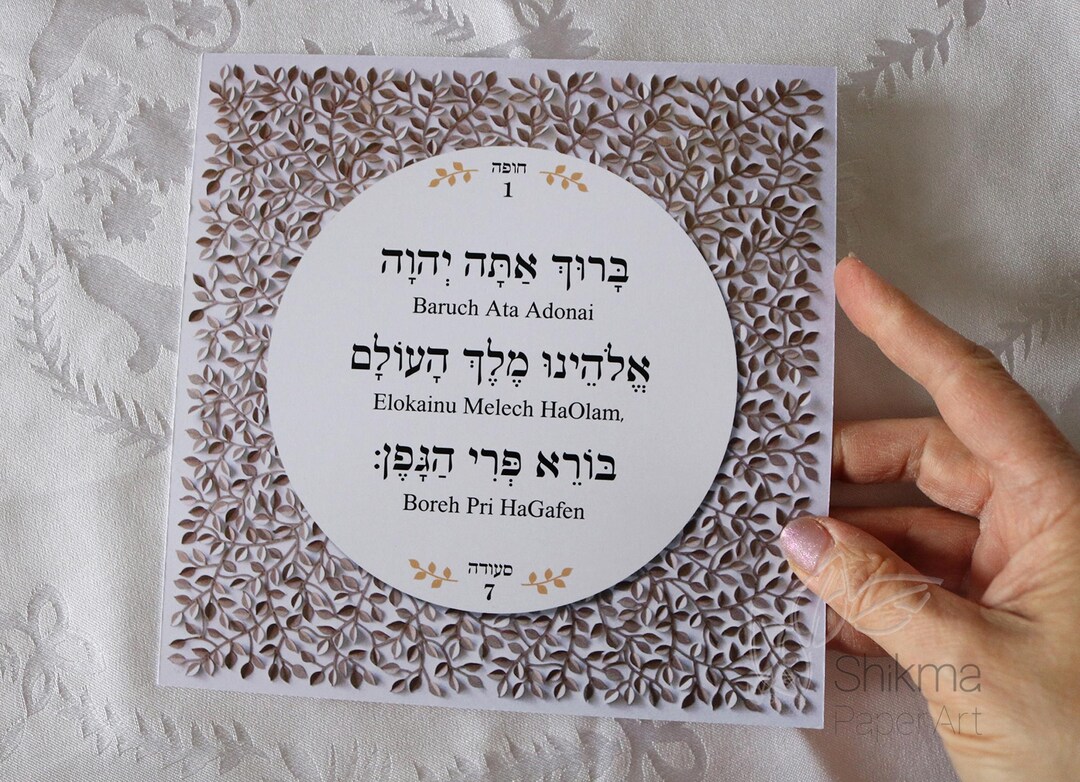 חופה
1
בָּרוּךְ אַתָּה יְהוָה
Baruch Ata Adonai
אֱלֹהֵינוּ מֶלֶךְ הָעוֹלָם
Elokainu Melech HaOlam,
בּוֹרֵא פְּרִי הַגָּפֶן:
Boreh Pri HaGafen
סעודה
7
Shikma
Paper Art